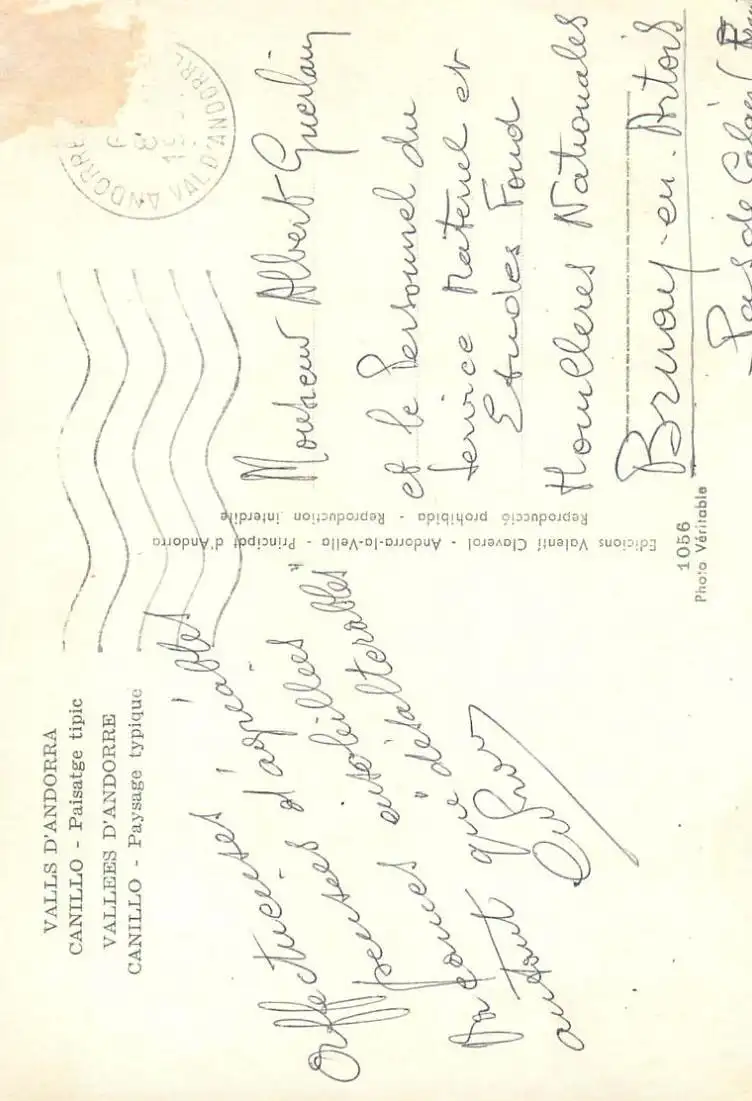 VALLS D'ANDORRA
CANILLO - Paisatge tipic
VALLEES D'ANDORRE
CANILLO - Paysage typique
Affectueuses
d'agréables
pensées
bacances
autant que "désaltérables
Edicions Valentí Claverol - Andorra-la-Vella - Principat d'Andorra
Reproducció prohibida - Reproduction interdite
1056
Photo Véritable
ANDORRE
VAL D'ANDORRE
Monsieur Albert Guerlain
et le Personnel du
Service Matériel et
Etudes Fond
Houillères Nationales
Bruay-en-Artois
Pas de Calais